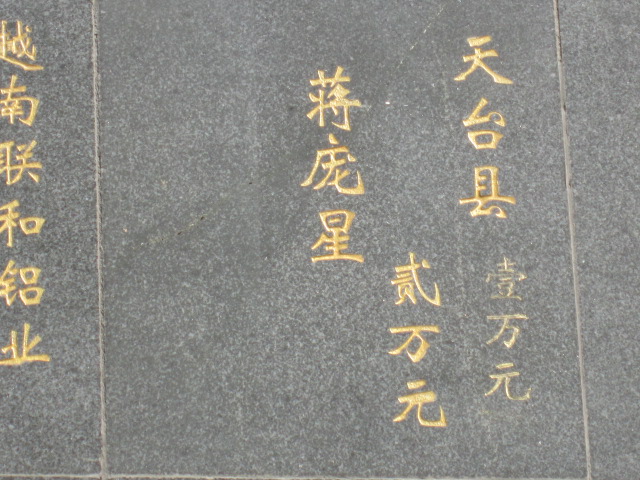 天台县
壹万元
贰万元
蒋庞星
越南联和铝业